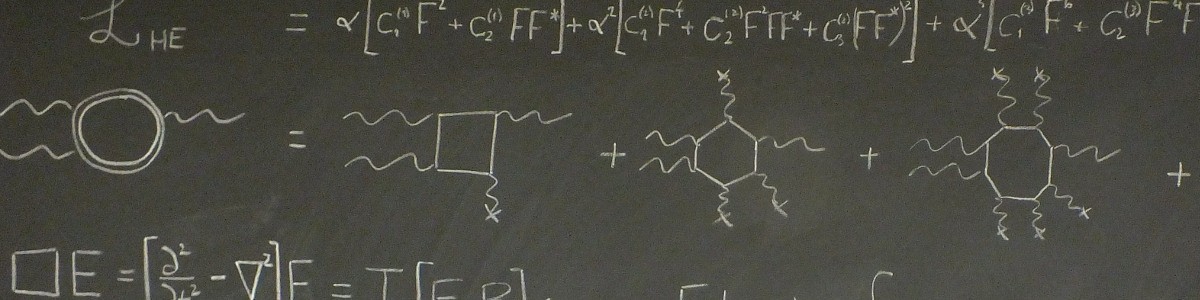 ℒ_HE = α[c₁⁽¹⁾F² + c₂⁽¹⁾FF*] + α²[c₁⁽²⁾F⁴ + c₂⁽²⁾F²FF* + c₃⁽²⁾(FF*)²] + α³[c₁⁽³⁾F⁶ + c₂⁽³⁾F⁴F
= + + +
□E = [∂²/∂t² - ∇²]E = T[E,B]